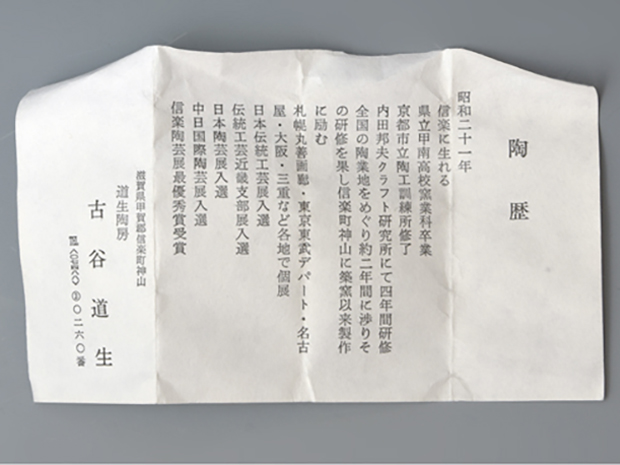 陶歴
昭和二十一年
信楽に生れる
県立甲南高校窯業科卒業
京都市立陶工訓練所修了
内田邦夫クラフト研究所にて四年間研修
全国の陶業地をめぐり約二年間に渉りそ
の研修を果し信楽町神山に築窯以来製作
に励む
札幌丸善画廊・東京東武デパート・名古
屋・大阪・三重など各地で個展
日本伝統工芸展入選
伝統工芸近畿支部展入選
日本陶芸展入選
中日国際陶芸展入選
信楽陶芸展最優秀賞受賞
滋賀県甲賀郡信楽町神山
道生陶房
古谷道生
〇二六〇番